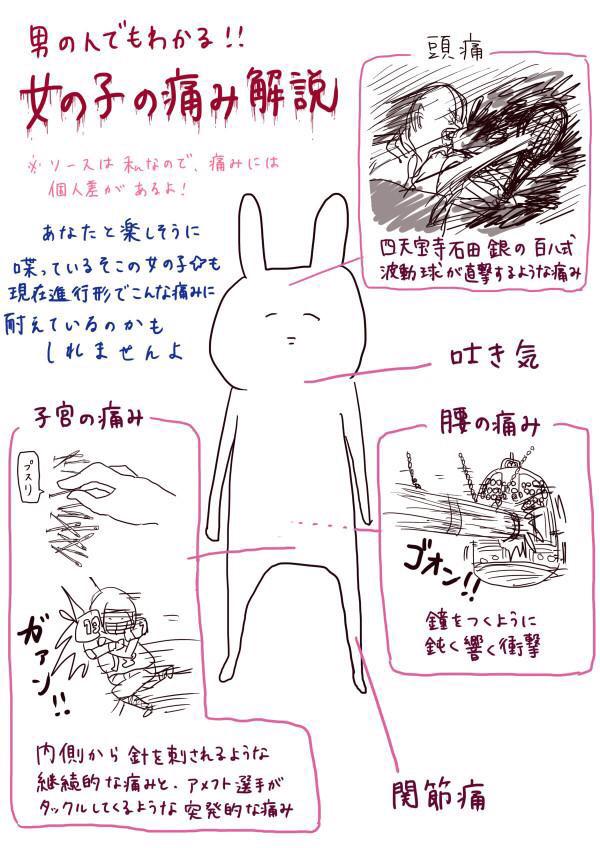 男の人でもわかる!!
女の子の痛み解説
※ソースは私なので、痛みには
個人差があるよ!
あなたと楽しそうに
喋っているそこの女の子☆も
現在進行形でこんな痛みに
耐えているのかも
しれませんよ
頭痛
四天宝寺石田銀の百八式
波動球が直撃するような痛み
吐き気
子宮の痛み
プスリ
13
ガァン!!
内側から針を刺されるような
継続的な痛みと、アメフト選手が
タックルしてくるような突発的な痛み
腰の痛み
ゴオン!!
鐘をつくように
鈍く響く衝撃
関節痛